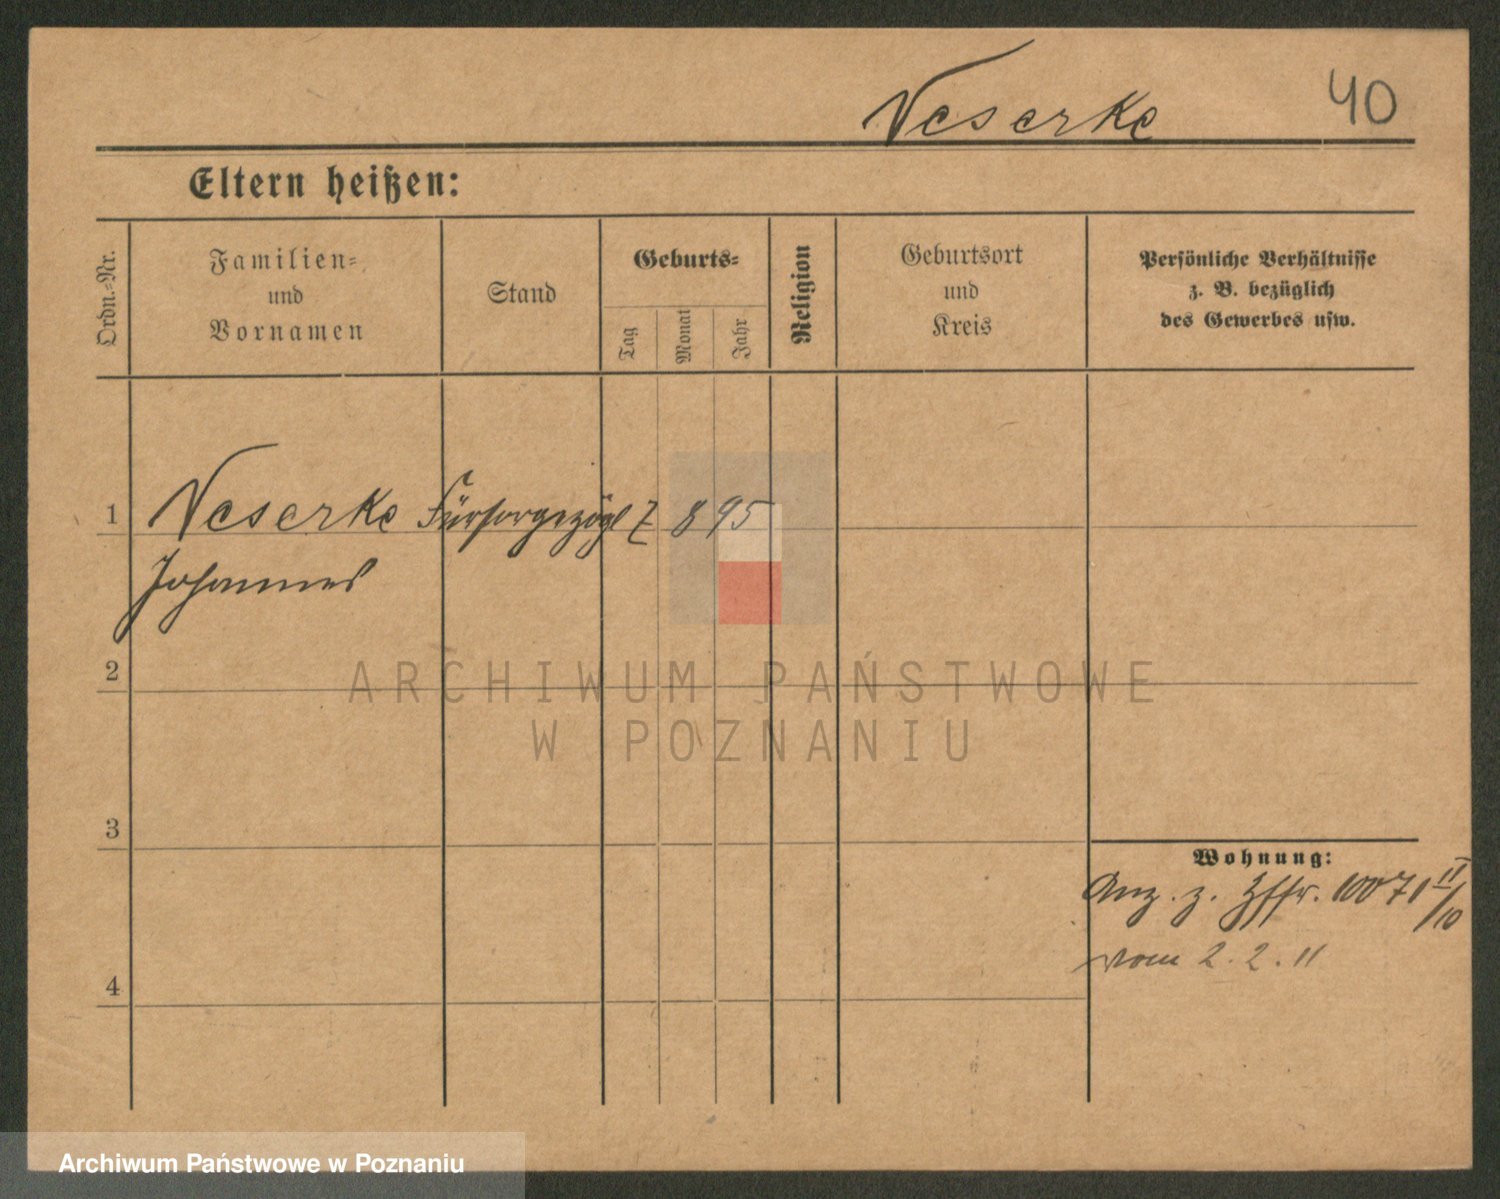 Neserke 40
Eltern heißen:
Ordn.-Nr.
Familien-
und
Vornamen
Stand
Geburts-
Tag
Monat
Jahr
Religion
Geburtsort
und
Kreis
Persönliche Verhältnisse
z. B. bezüglich
des Gewerbes usw.
1 Neserke Fürsorgezögl 7 8 95
Johannes
2
3
Wohnung:
Anz. z. 10071 II/10
vom 2. 2. 11
4
ARCHIWUM PAŃSTWOWE
W POZNANIU
Archiwum Państwowe w Poznaniu